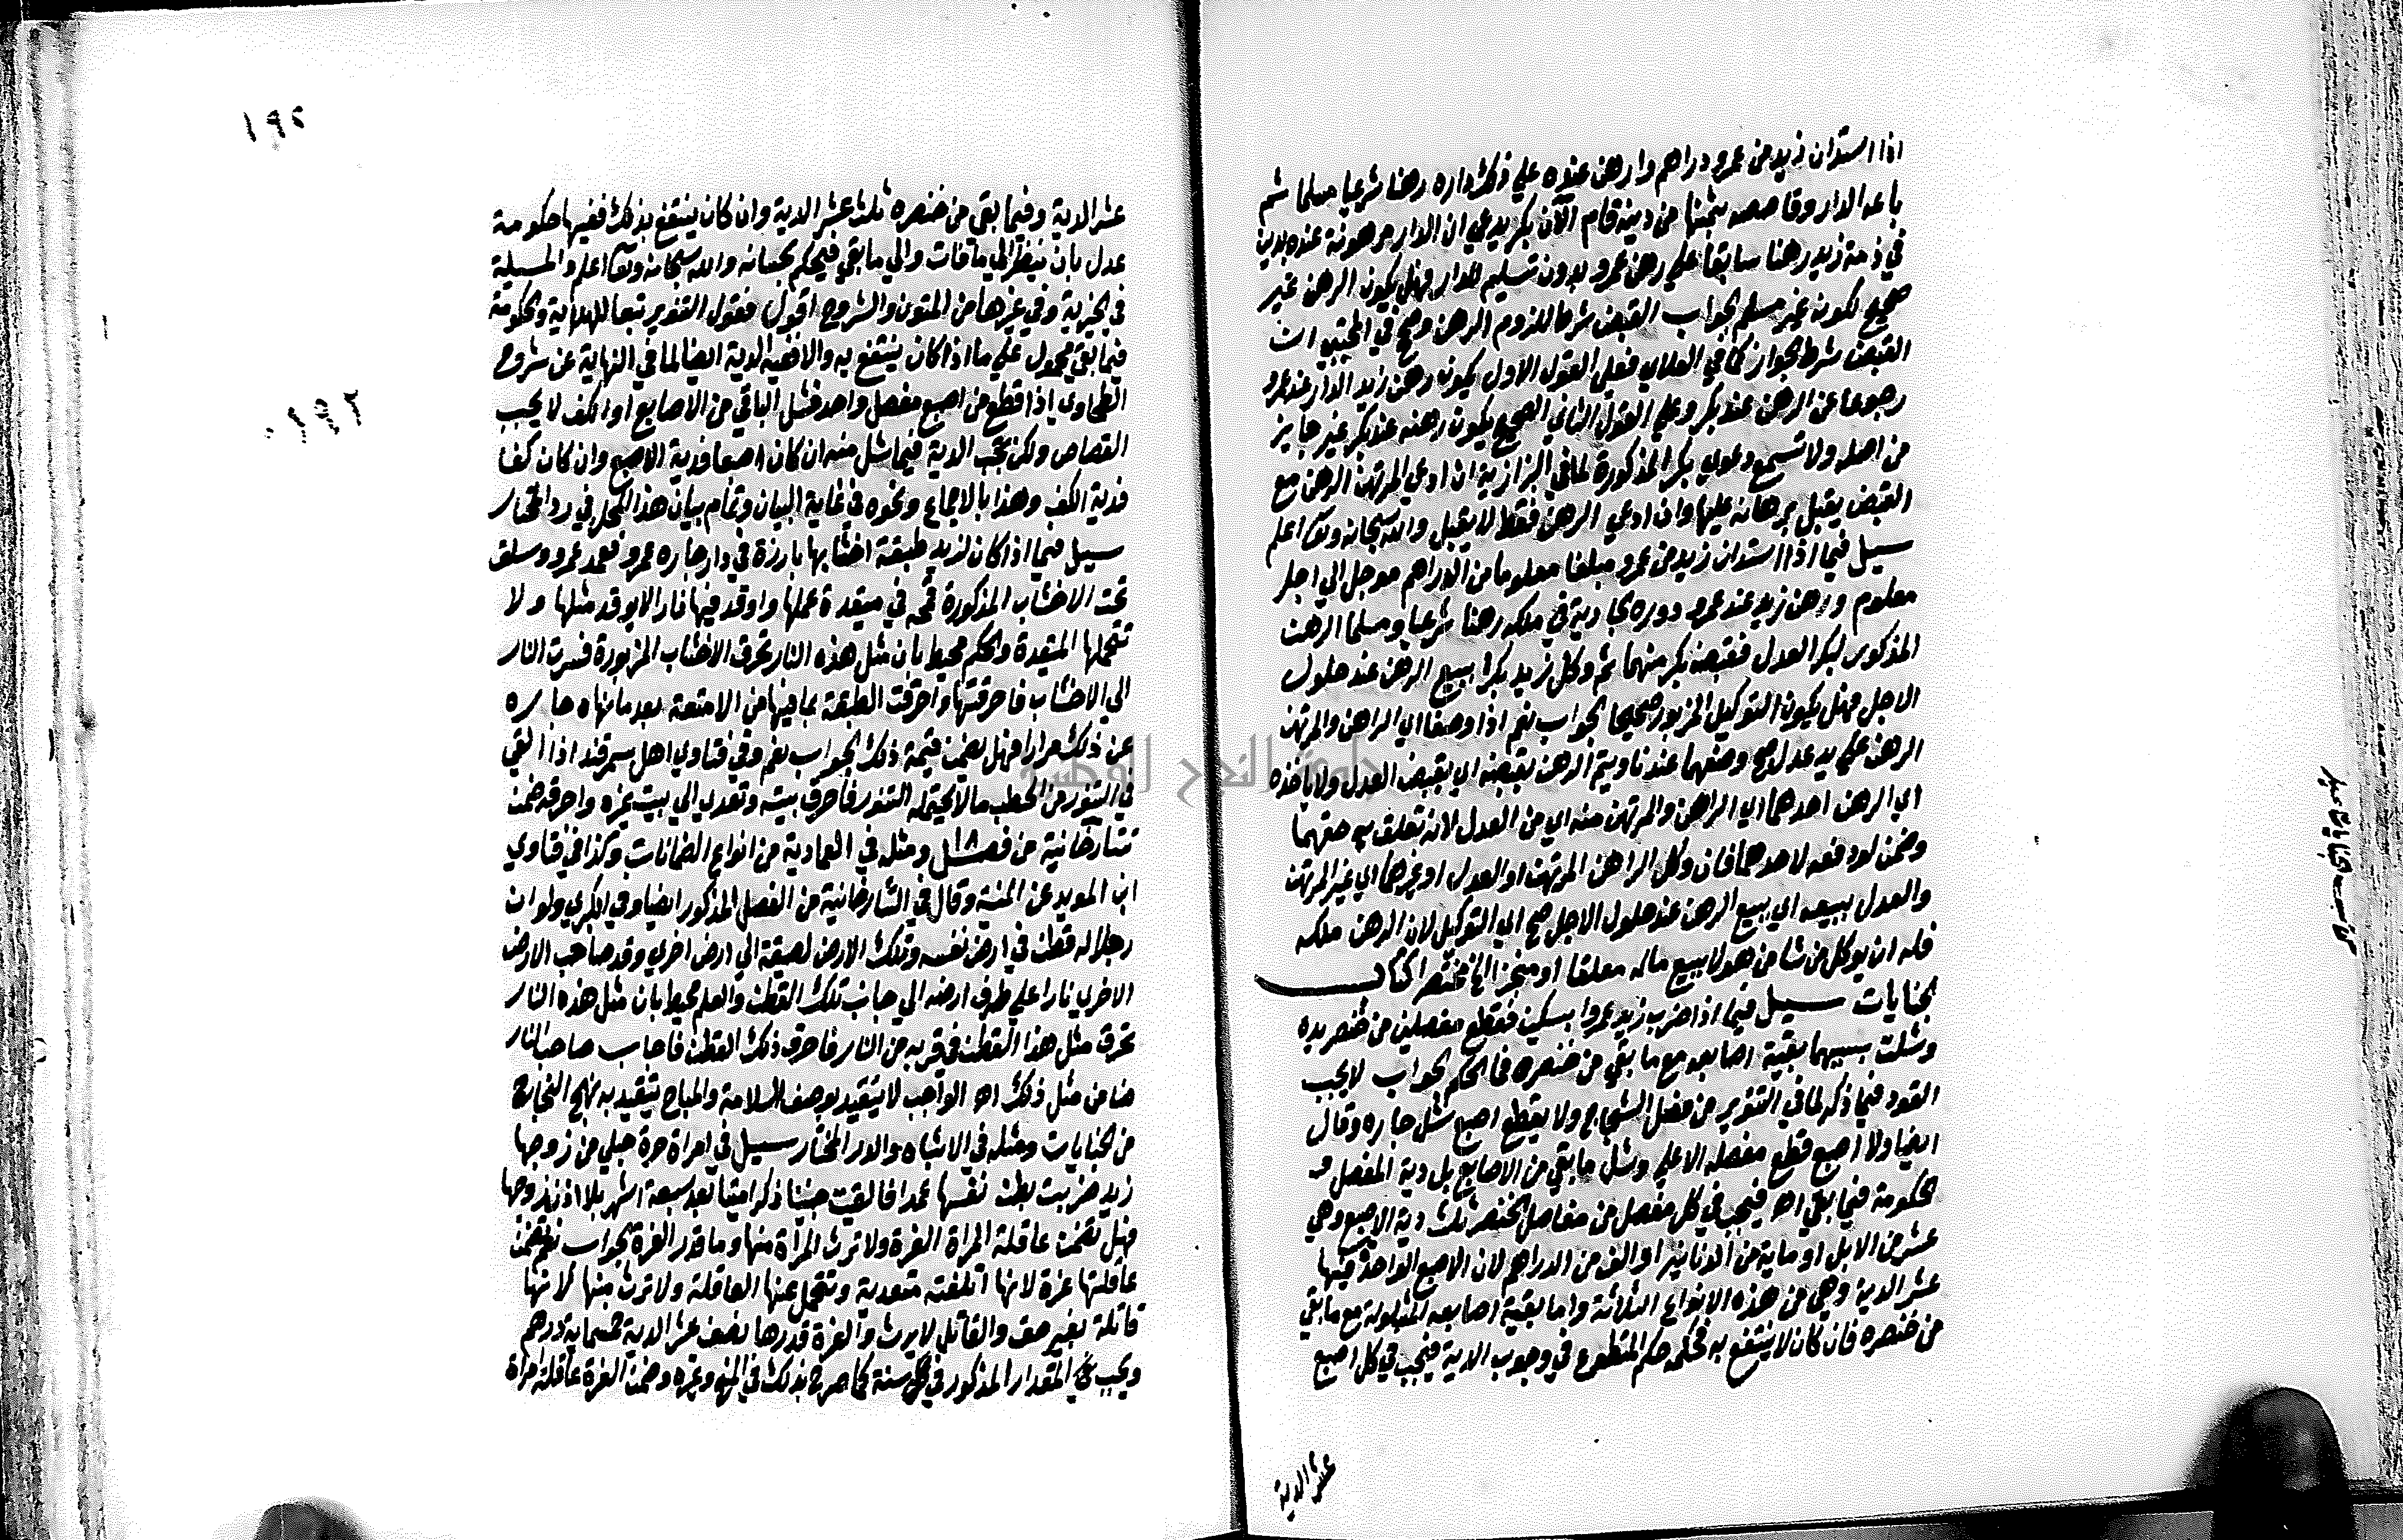 اذا استدان زيد من عمرو دراهم وارهن عنده علي ذلك داره رهنا شرعيا مسلما ثم
باعه الدار وقاصصه بثمنها من دينه قام الآن بكر يدعي ان الدار مرهونة عنده بدين
في ذمة زيد رهنا سابقا علي رهن عمرو بدون تسليم للدار فهل يكون الرهن غير
صحيح لكونه غير مسلم الجواب القبض شرط للزوم الرهن وصح في المجتبي ان
القبض شرط الجواز كما في العلاي فعلي القول الاول يكون رهن زيد الدار عند عمرو
رجوعا عن الرهن عند بكر وعلي القول الثاني الصحيح يكون رهنه عند بكر غير جايز
من اصله ولا تسمع دعوي بكر المذكورة لما في البزازية ان ادعي المرتهن الرهن مع
القبض يقبل برهانه عليها وان ادعي الرهن فقط لا يقبل والله سبحانه وتعا اعلم
سيل فيما اذا استدان زيد من عمرو مبلغا معلوما من الدراهم موجل الي اجل
معلوم ورهن زيد عند عمرو دوره الجارية في ملكه رهنا شرعيا ومسلما الرهن
المذكور لبكر العدل فقبضه بكر منهما ثم وكل زيد بكرا ببيع الرهن عند حلول
الاجل فهل يكون التوكيل المزبور صحيحا الجواب نعم اذا وضعا اي الراهن والمرتهن
الرهن علي يد عدل صح وضعهما عندنا ويتم الرهن بقبضه اي بقبض العدل ولا ياخذه
اي الرهن احدهما اي الراهن والمرتهن منه اي من العدل لانه تعلق به حقهما
وضمن لو دفعه لاحدهما فان وكل الراهن المرتهن او العدل او غيرهما اي غير المرتهن
والعدل ببيعه اي ببيع الرهن عند حلول الاجل صح اي التوكيل لان الرهن ملكه
فله ان يوكل من شا من هولا ببيع ماله معلقا او منجزا الخ مختصرا كتاب
الجنايات سيل فيما اذا ضرب زيد عمروا بسكين فقطع مفصلين من خنصر يده
وشلت بسببهما بقية اصابعه مع ما بقي من خنصره فما الحكم الجواب لا يجب
القود فيما ذكر لما في التنوير من فصل الشجاج ولا يقطع اصبع شل جاره وقال
ايضا ولا اصبع قطع مفصله الاعلي وشل ما بقي من الاصابع بل دية المفصل و
الحكومة فيما بقي اهـ فيجب في كل مفصل من مفاصل الخنصر ثلث دية الاصبع وهي
عشر من الابل او ماية من الدنانير او الف من الدراهم لان الاصبع الواحدة فيها
عشر الدية وهي من هذه الانواع الثلاثة واما بقية اصابعه المشلولة مع ما بقي
من خنصره فان كان لا ينتفع به فحكمه حكم المقطوع في وجوب الدية فيجب في كل اصبع
عشر الدية
١٩٢
١٩٢
عشر الدية وفيما بقي من خنصره ثلث عشر الدية وان كان ينتفع بذلك ففيها حكومة
عدل بان ينظر الي ما فات والي ما بقي فيحكم بحسابه والله سبحانه وتعا اعلم والمسيلة
في الخيرية وفي غيرها من المتون والشروح اقول فقول التنوير تبعا للهداية والحكومة
فيما بقي محمول علي ما اذا كان ينتفع به والا ففيه الدية ايضا لما في النهاية عن شروح
الطحاوي اذا قطع من اصبع مفصل واحد فشل الباقي من الاصابع او الكف لا يجب
القصاص ولكن تجب الدية فيما شل منه ان كان اصبعا فدية الاصبع وان كان كفا
فدية الكف وهذا بالاجماع ونحوه في غاية البيان وتمام بيان هذا المحل في رد المحتار
سيل فيما اذا كان لزيد طبقة اخشابها بارزة في دار جاره عمرو فعمد عمرو وسلق
تحت الاخشاب المذكورة قمحه في متقدة عملها واوقد فيها نارا لا يوقد مثلها ولا
تتحملها المتقدة والحكم محيط بان مثل هذه النار تحرق الاخشاب المزبورة فسرت النار
الي الاخشاب فاحرقتها واحرقت الطبقة بما فيها من الامتعة بعد ما نهاه جاره
عن ذلك مرارا فهل يضمن قيمة ذلك الجواب نعم وفي فتاوي اهل سمرقند اذا القي
في التنور من الحطب ما لا يحتمله التنور فاحرق بيته وتعدي الي بيت غيره واحرقه ضمن
تتارخانية من فصل ١٨ ومثله في العمادية من انواع الضمانات وكذا في فتاوي
ابن المويد عن المنية وقال في التتارخانية من الفصل المذكور ايضا وفي الكبري ولو ان
رجلا له قطن في ارض نفسه وتلك الارض لصيقة الي ارض اخري وقد صاحب الارض
الاخري نارا علي طرف ارضه الي جانب تلك القطن والعلم محيط بان مثل هذه النار
تحرق مثل هذا القطن في قربه من النار فاحرق ذلك القطن فاجاب صاحب النار
ضامن مثل ذلك اهـ الواجب لا يتقيد بوصف السلامة والمباح يتقيد به نهج النجاة
من الجنايات ومثله في الاشباه والدر المختار سيل في امراة حرة حبلي من زوجها
زيد ضربت بطن نفسها عمدا فالقت جنينا ذكرا ميتا بعد سبعة اشهر بلا اذن زوجها
فهل تضمن عاقلة المراة الغرة ولا ترث المراة منها وما قدر الغرة الجواب نعم تضمن
عاقلتها غرة لانها اتلفته متعدية وتتحمل عنها العاقلة ولا ترث منها لانها
قاتلة بغير حق والقاتل لا يرث والغرة قدرها نصف عشر الدية خمسماية درهم
ويجب المقدار المذكور في سنة كما صرح بذلك في المنح وغيره وضمن الغرة عاقلة امراة